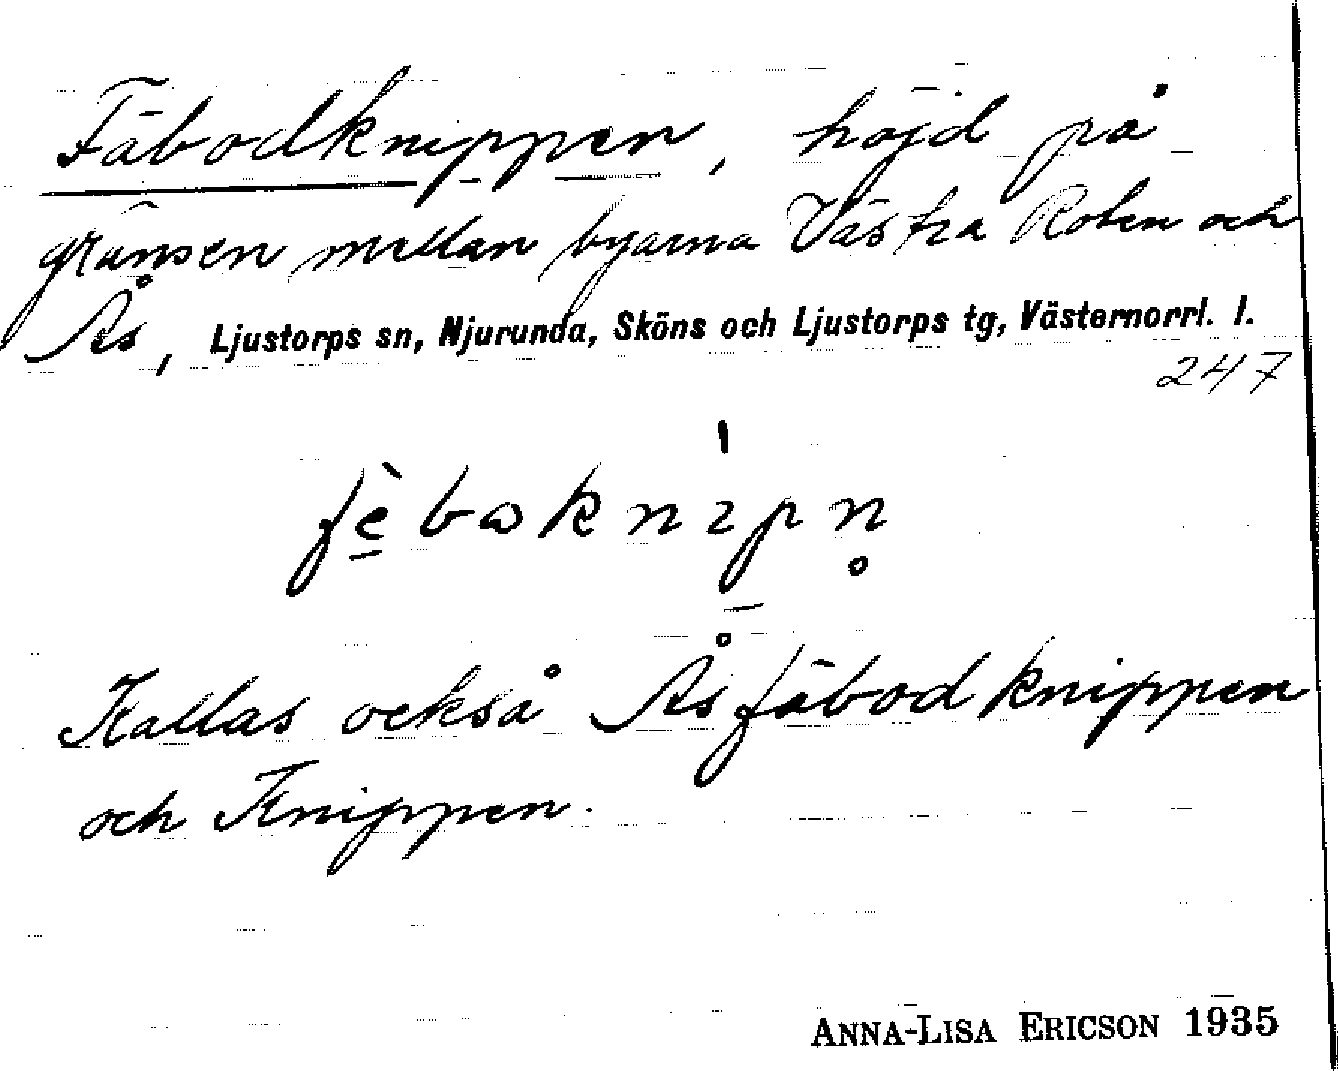 Fäbodknippen, höjd på
gränsen mellan byarna Västra Roten och
Ås, Ljustorps sn, Njurunda, Sköns och Ljustorps tg, Västernorrl. l.
247
fèbωknıpn̥
Kallas också Åsfäbodknippen
och Knippen.
ANNA-LISA ERICSON 1935